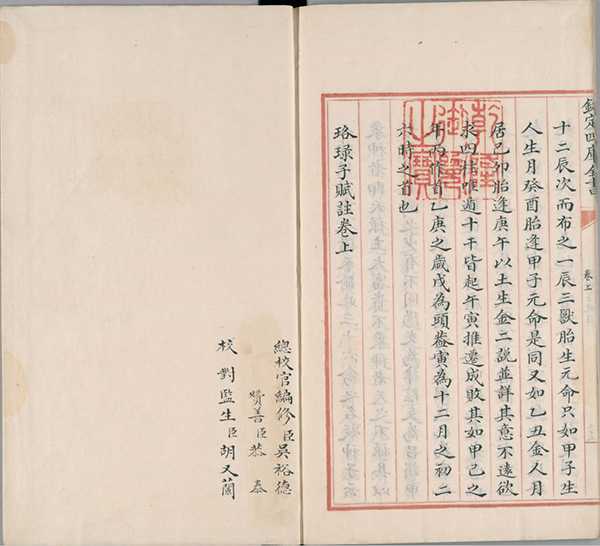 欽定四庫全書
卷上
十二辰次而布之一辰三獸胎生元命只如甲子生
人生月癸酉胎逢甲子元命是同又如乙丑金人月
居己卯胎逢庚午以土生金二說並詳其意不遠欲
求四柱惟遁十干皆起午寅推遷成敗其如甲己之
年丙作首乙庚之歲戊為頭葢寅為十二月之初二
六時之首也
珞琭子賦註卷上
乾隆御覽之寶
總校官編修臣吳裕德
贊善臣恭泰
校對監生臣胡又蘭